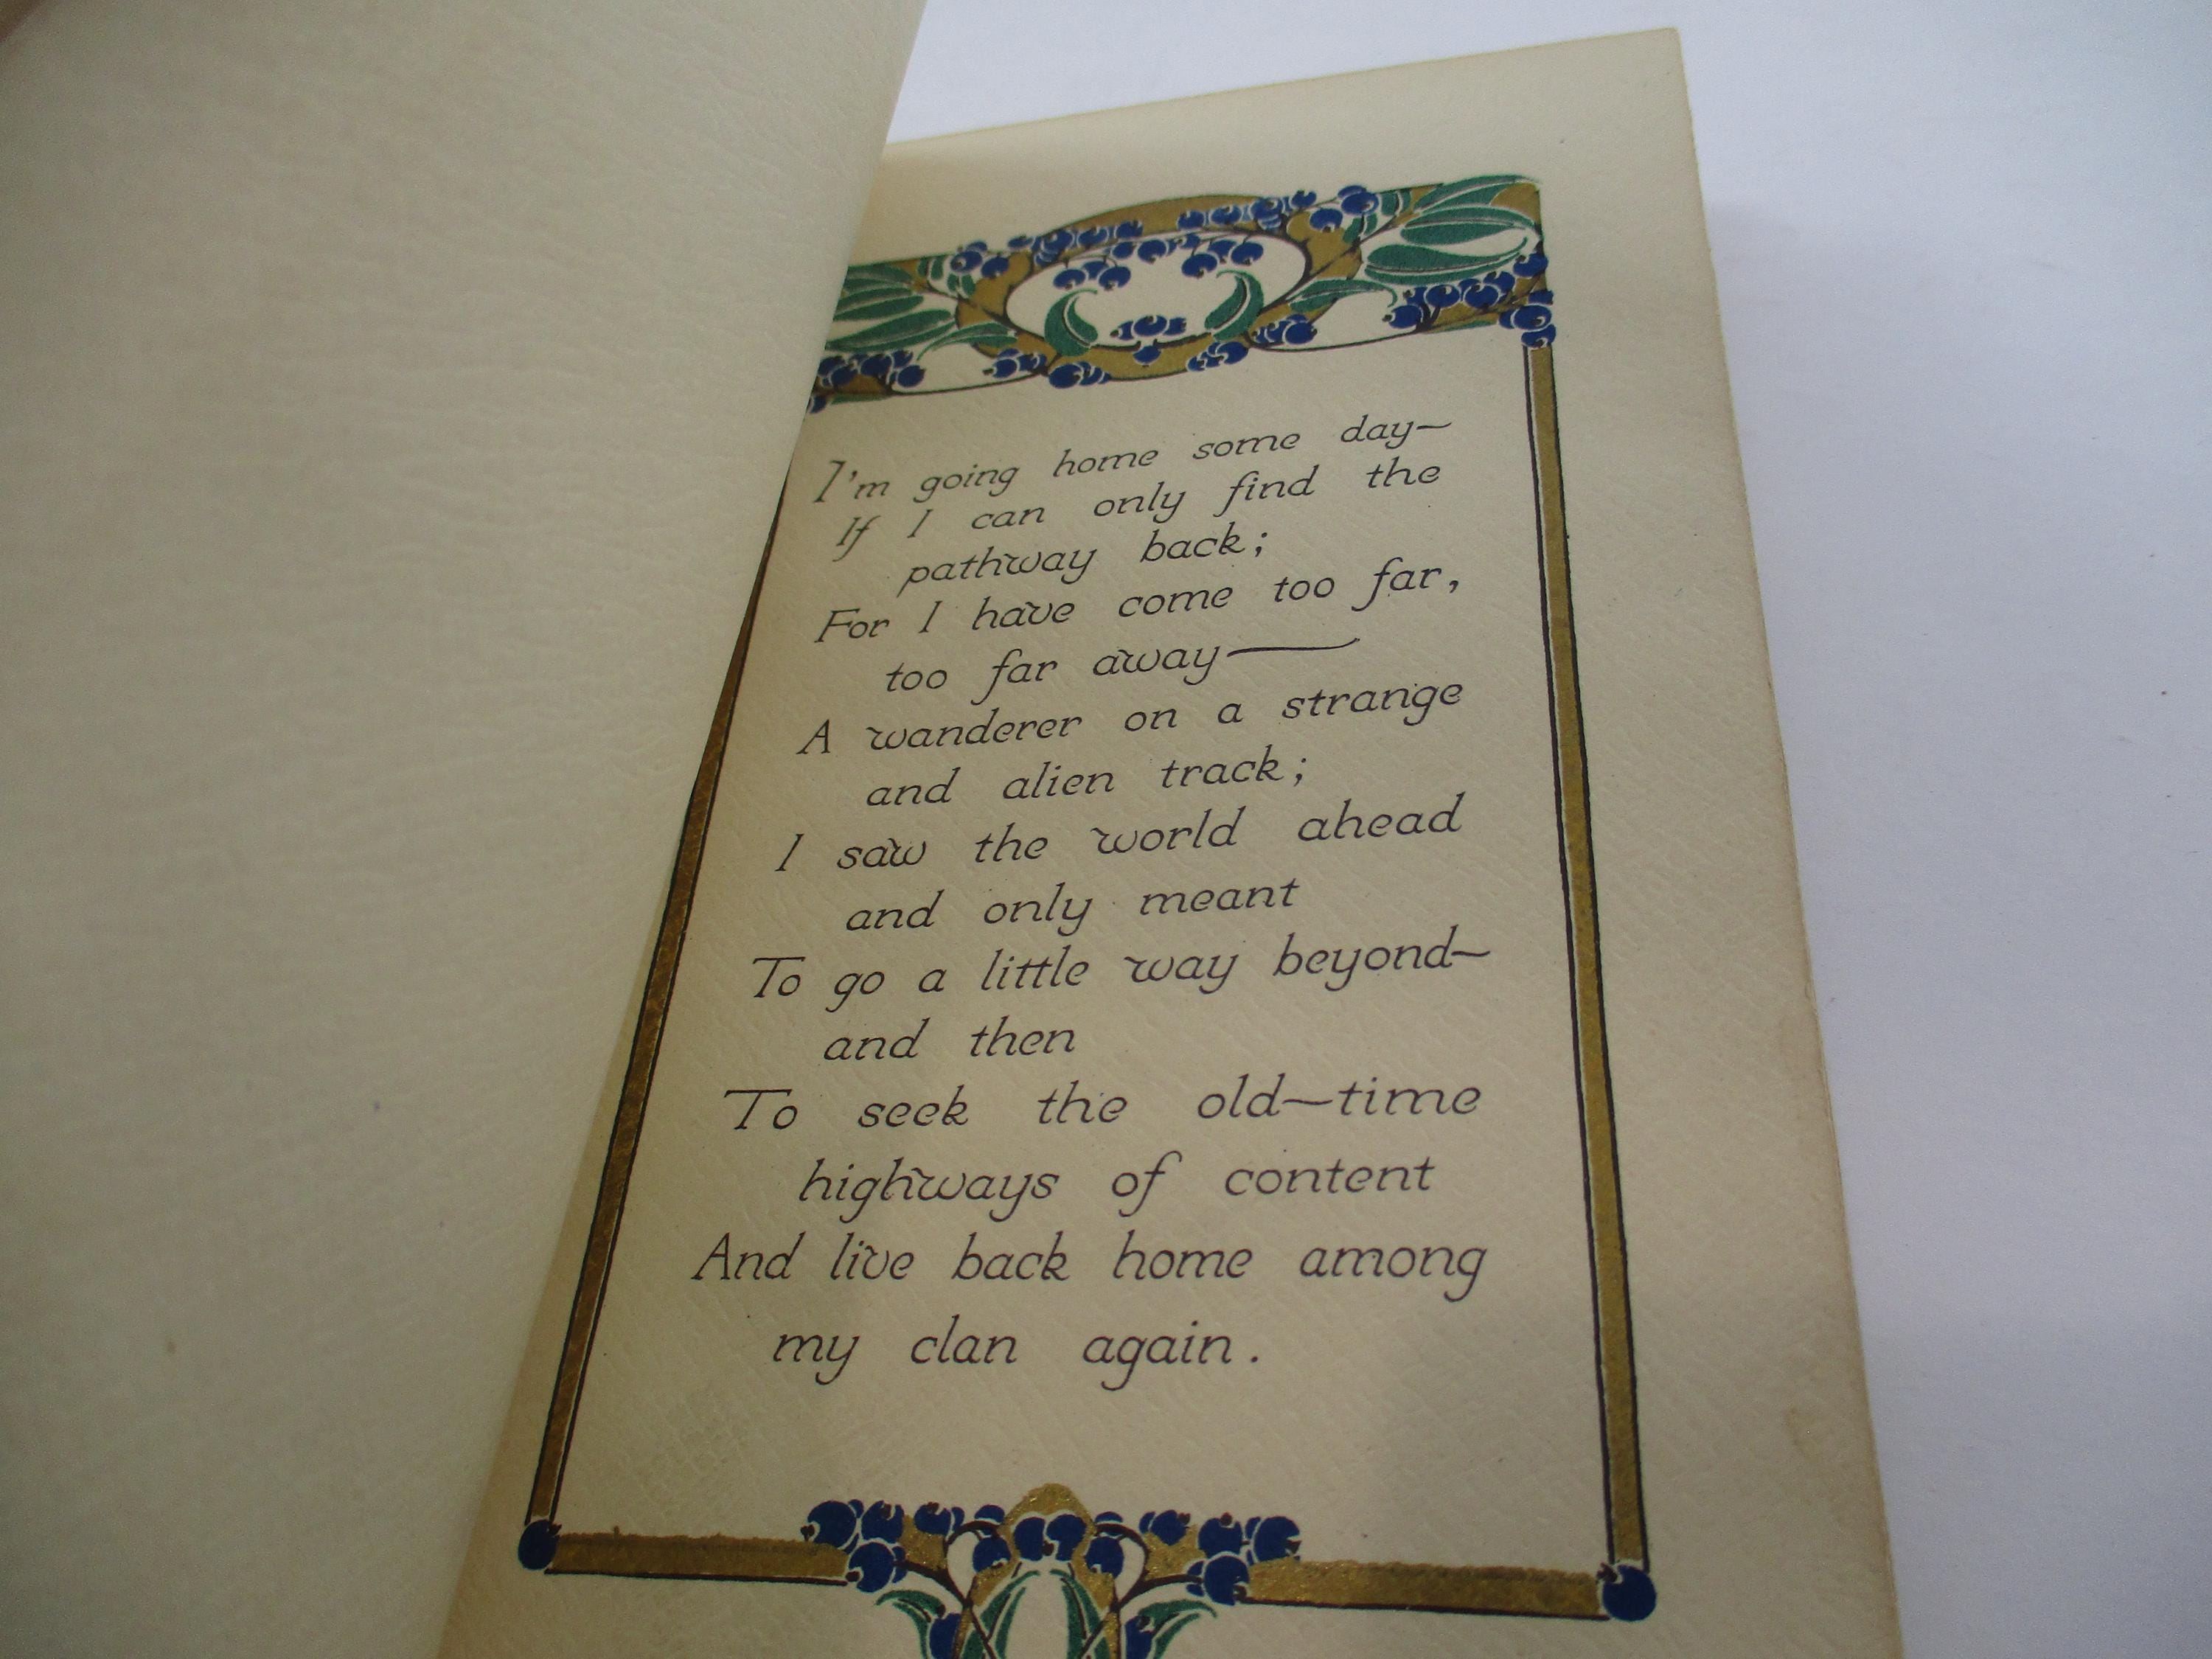 I'm going home some day—
If I can only find the
pathway back;
For I have come too far,
too far away—
A wanderer on a strange
and alien track;
I saw the world ahead
and only meant
To go a little way beyond—
and then
To seek the old-time
highways of content
And live back home among
my clan again.